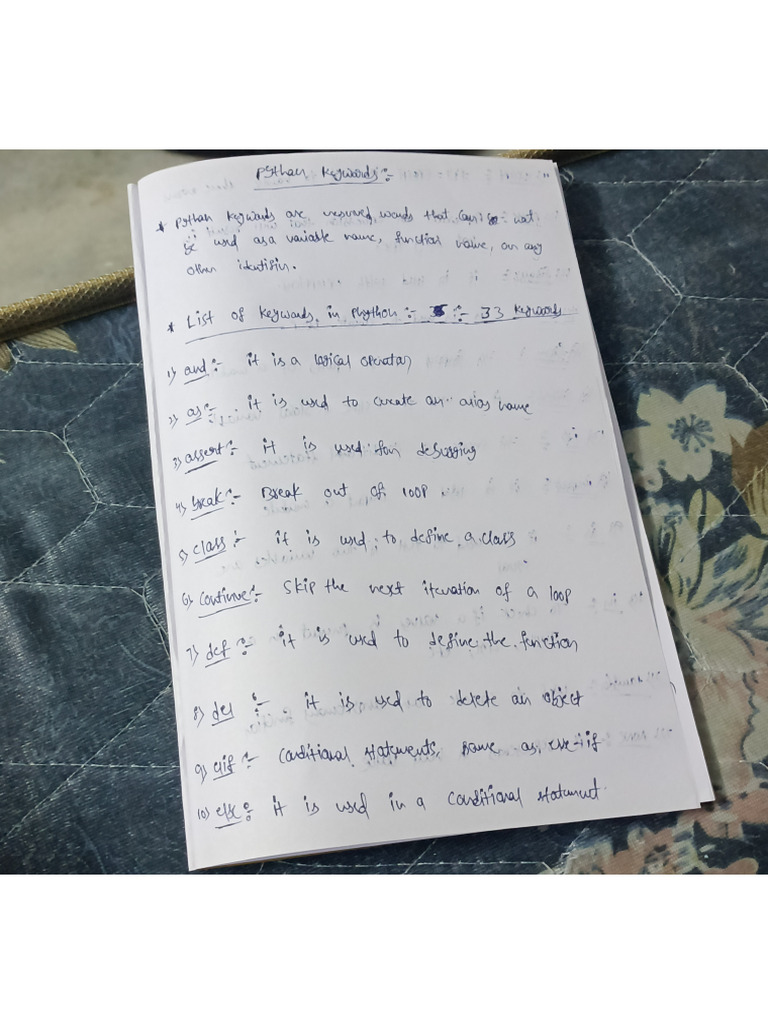 Python Keywords :-
* Python Keywords are reserved words that can not
be used as a variable name, function name, or any
other identifier.
* List of Keywords in Phython :- :- 33 Keywords
1) and :- it is a logical operator
2) as :- it is used to create an alias name
3) assert :- it is used for debugging
4) break :- Break out of loop
5) class :- it is used to define a class
6) continue :- Skip the next iteration of a loop
7) def :- it is used to define the function
8) del :- it is used to delete an object
9) elif :- Conditional statements same as else-if
10) else :- it is used in a conditional statement